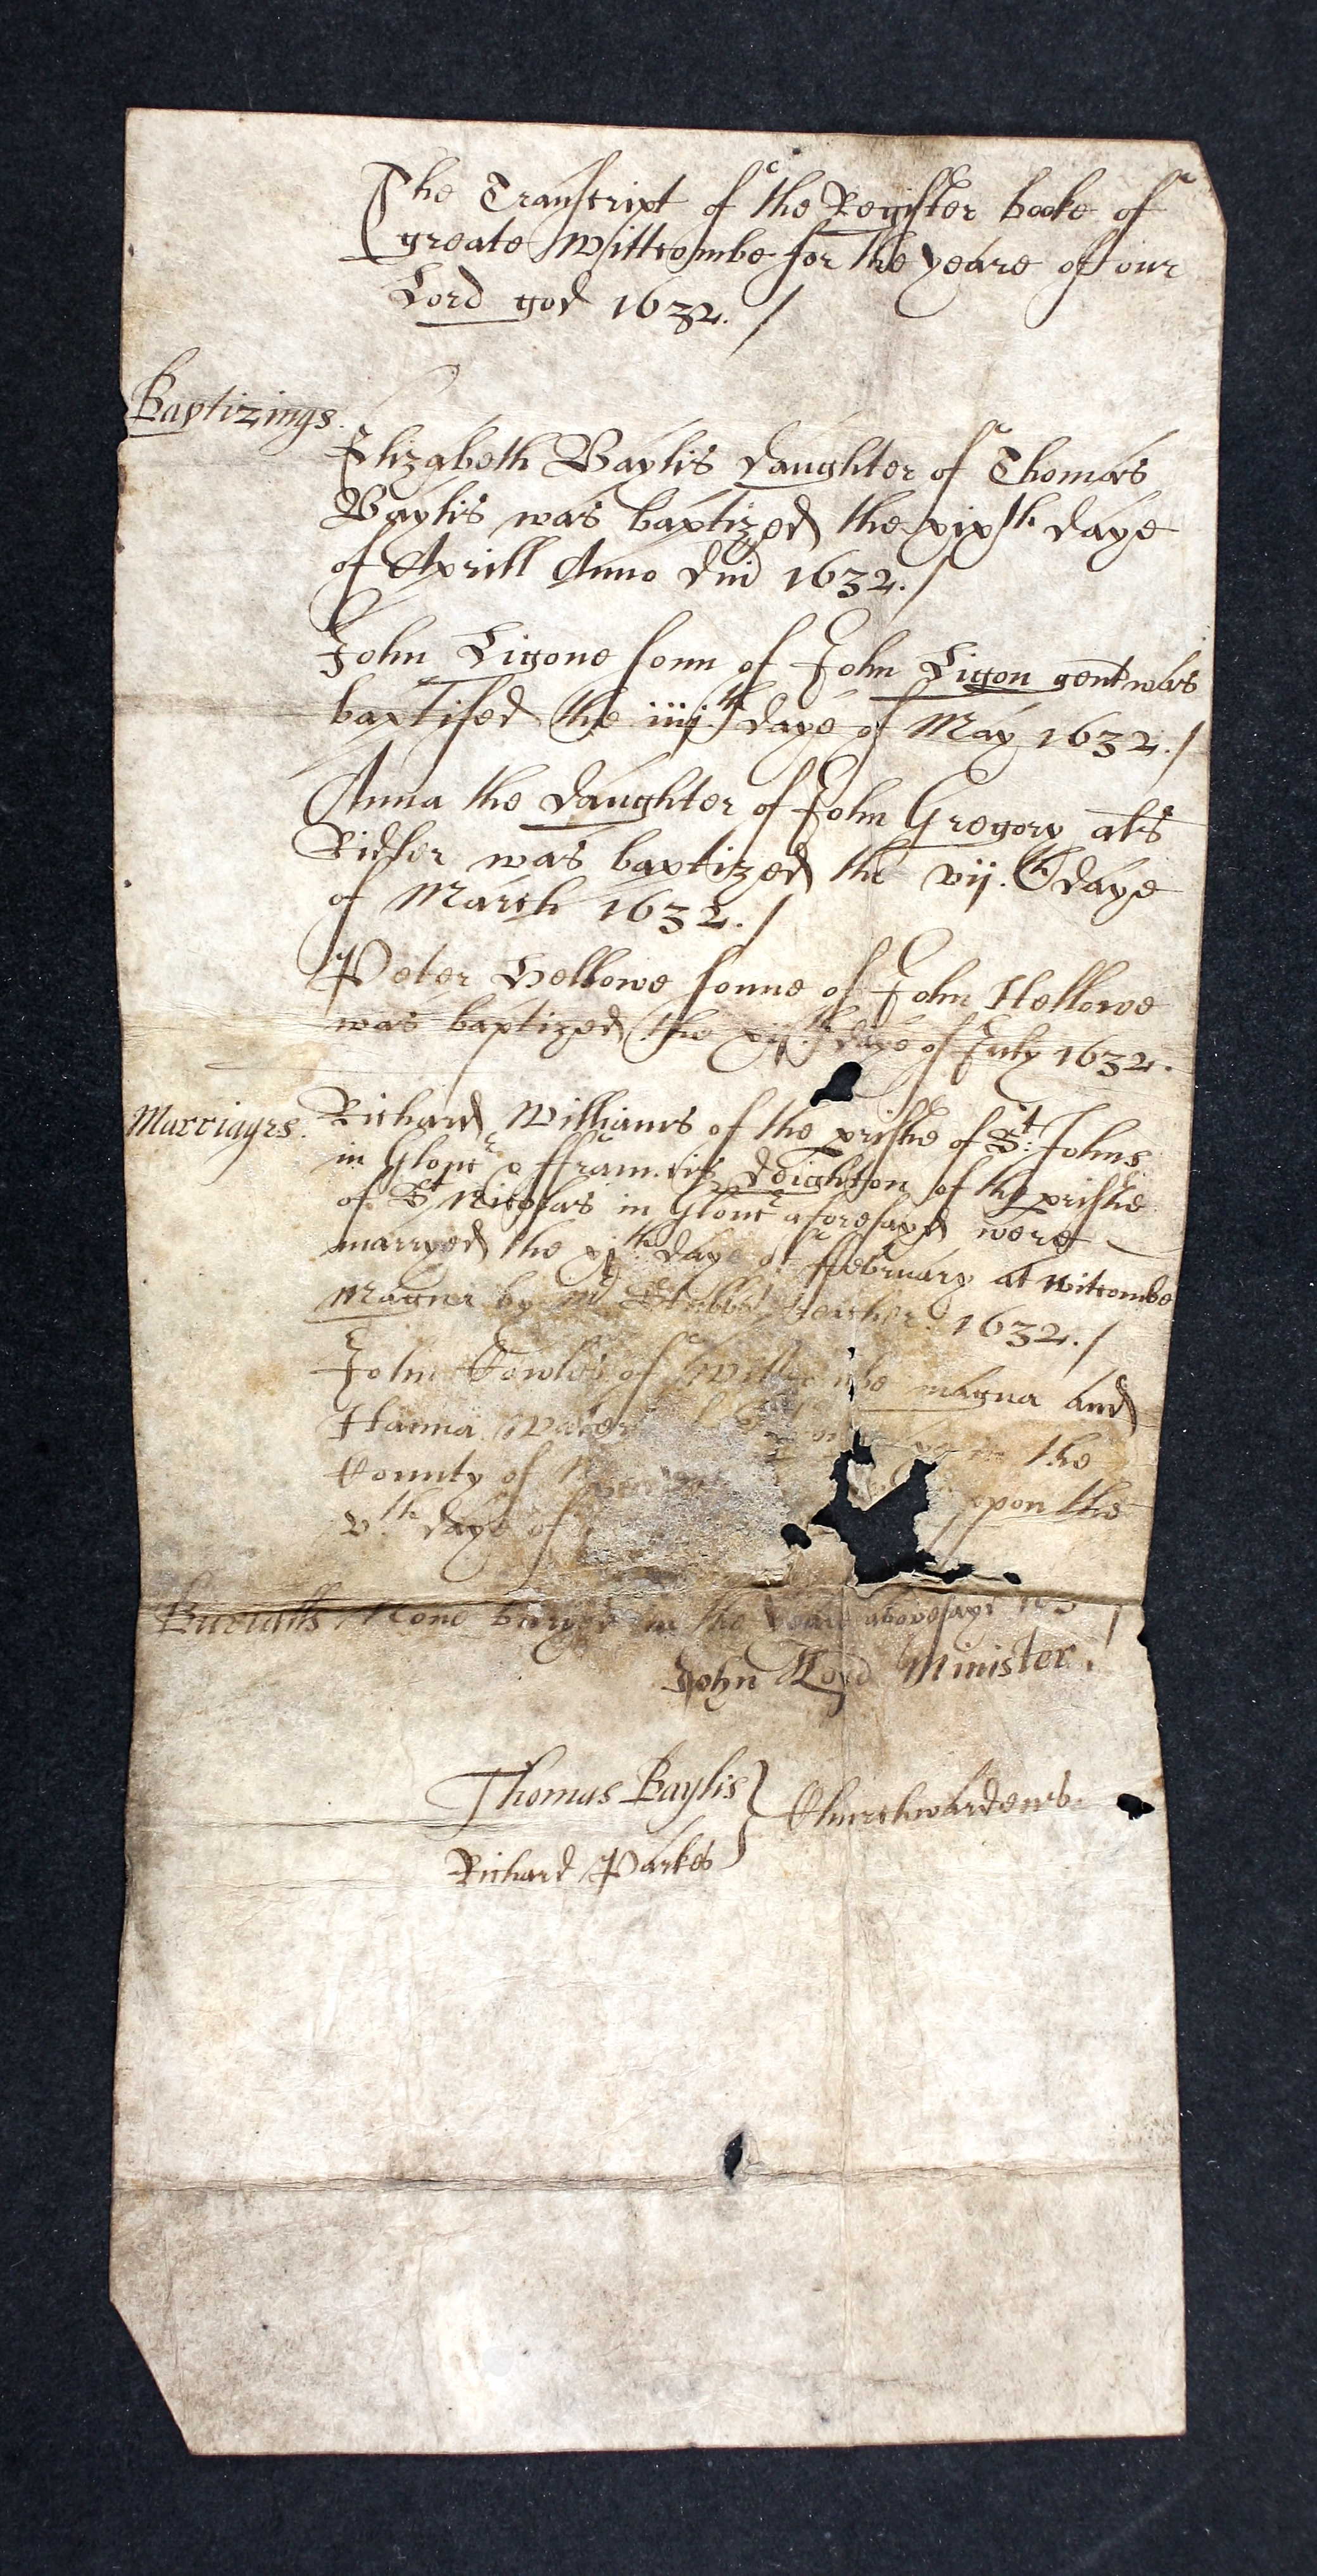 The Transcript of the Register booke of
greate Wittcombe for the yeare of our
Lord god 1632. /
Baptizings.
Elizabeth Baylis daughter of Thomas
Baylis was baptized the xixth daye
of Aprill Anno dni 1632. /
John Ligone sonn of John Ligon gent was
baptised the iiijth daye of May 1632. /
Anna the daughter of John Gregory als
Ridler was baptized the vij.th daye
of March 1632. /
Peter Hellowe sonne of John Hellowe
was baptized the daye of July 1632.
Marriages.
Richard Williams of the prishe of St: Johns
in Glouc & ffrancis Deighton of the prishe
of St Nicolas in Glouc aforesayd were
marryed the xjth daye of ffebruary at Witcombe
Magna by Mr 1632. /
John of magna and
Hanna the
County of upon the
v.th daye of
Burialls None buryed in the yeare abovesayd
John Lloyd Minister.
Thomas Baylis } Churchwardens.
Richard Parkes